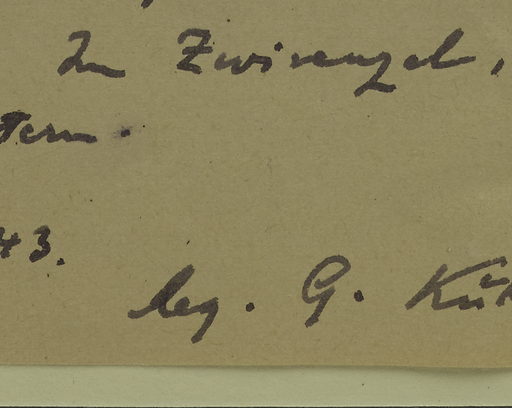 Im Zwirengel,
tern.
43.
leg. G. Kük